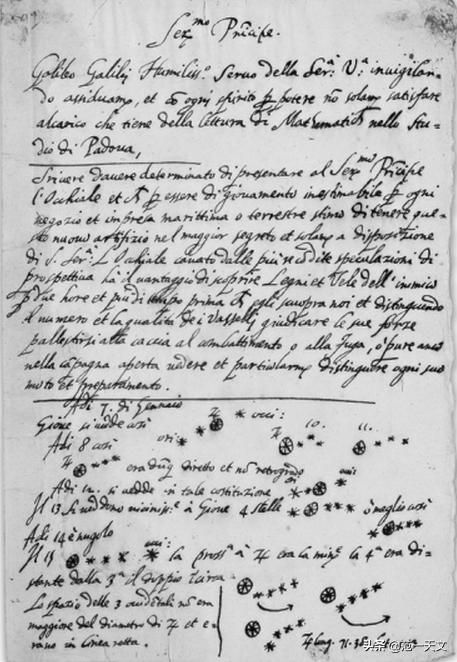 Ser.mo Pricipe.
Galileo Galilej Humiliss.o Seruo della Ser.a V.a inuigilan-
do assiduam.e, et cõ ogni spirito p potere nõ solam.e satisfare
alcarico che tiene della lettura di Mathematica nello Stu-
dio di Padoua,
Scriuere dauere determinato di presentare al Ser.mo Pricipe
l'Occhiale et p essere di giouamento inestimabile p ogni
negozio et impresa marittima o terrestre stimo di tenere que-
sto nuouo artifizio nel maggior segreto et solam.e a disposizione
di V. Ser.a L'Occhiale cauato dalle piu recõdite speculazioni di
prospettiua hà il uantaggio di scoprire Legni et Vele dell'inimico
p due hore et piu di tempo prima egli scuopra noi et distinguendo
il numero et la qualità de i Vasselli giudicare le sue forze
pallestirsi alla caccia al combattimento o alla fuga, o pure anco
nella cãpagna aperta uedere et particularm.e distinguere ogni suo
moto et preparamento.
Adi 7. di Gennaio
Gioue si uedde cosi occi:
Adi 8 cosi ori: 10. 11.
era dũq. diretto et nõ retrogrado
Adi 12. si uedde in tale costituzione occi:
Il 13 si ueddono uiciniss.e à Gioue 4 stelle ò meglio cosi
Adi 14 è nugolo
Il 15 occi: la pross.a à ♃ era la min.e la 4.a era di-
stante dalla 3.a il doppio
Lo spazio delle 3 occidẽtali nõ era
maggiore del diametro di ♃ et e-
rano in linea retta.
♃ long. 71.38
头条 @应一天文